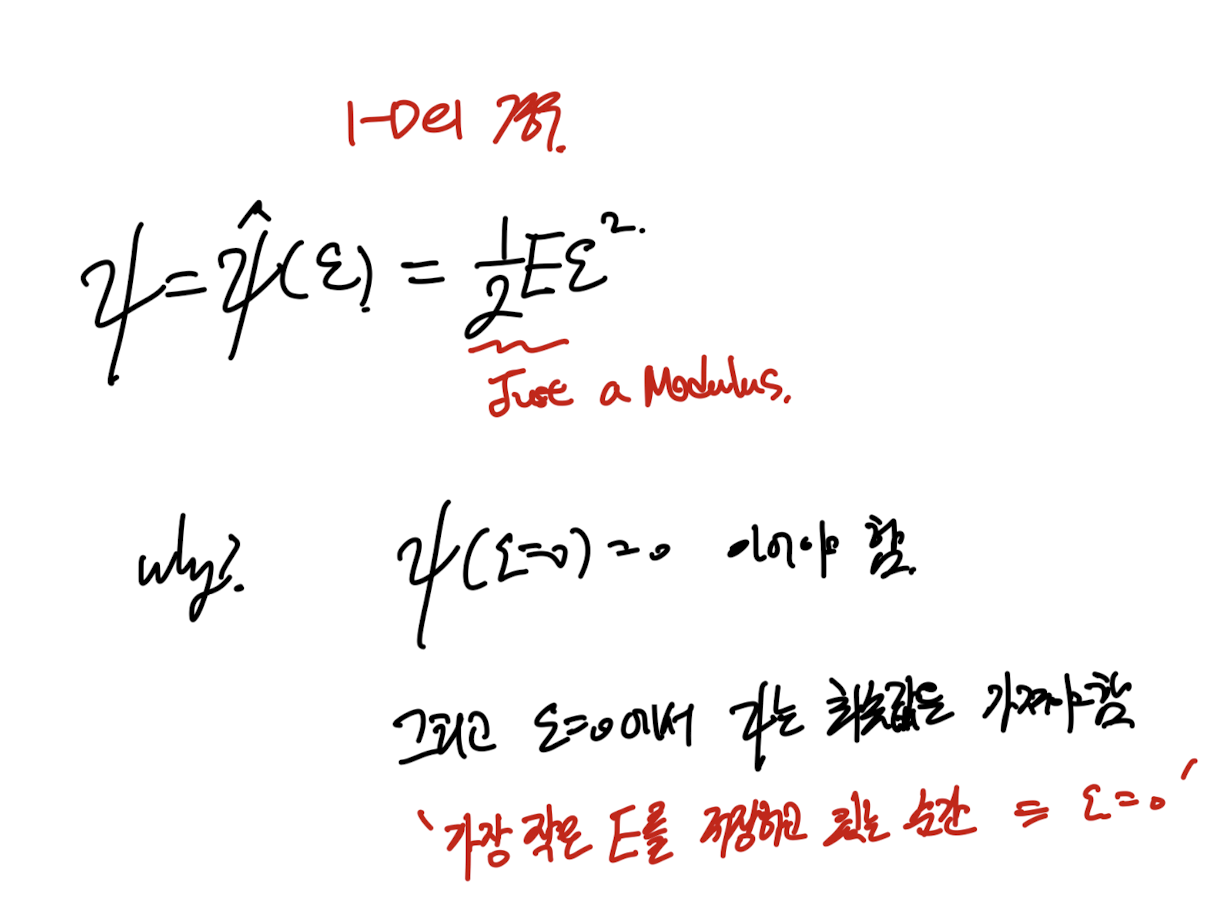 1-D의 경우.
ψ = ψ̂(ε) = 1/2 Eε².
Just a Modulus.
why? ψ(ε=0)=0 이어야 함.
그리고 ε=0에서 ψ는 최솟값을 가져야함
'가장 작은 E를 저장하고 있는 순간 = ε=0'